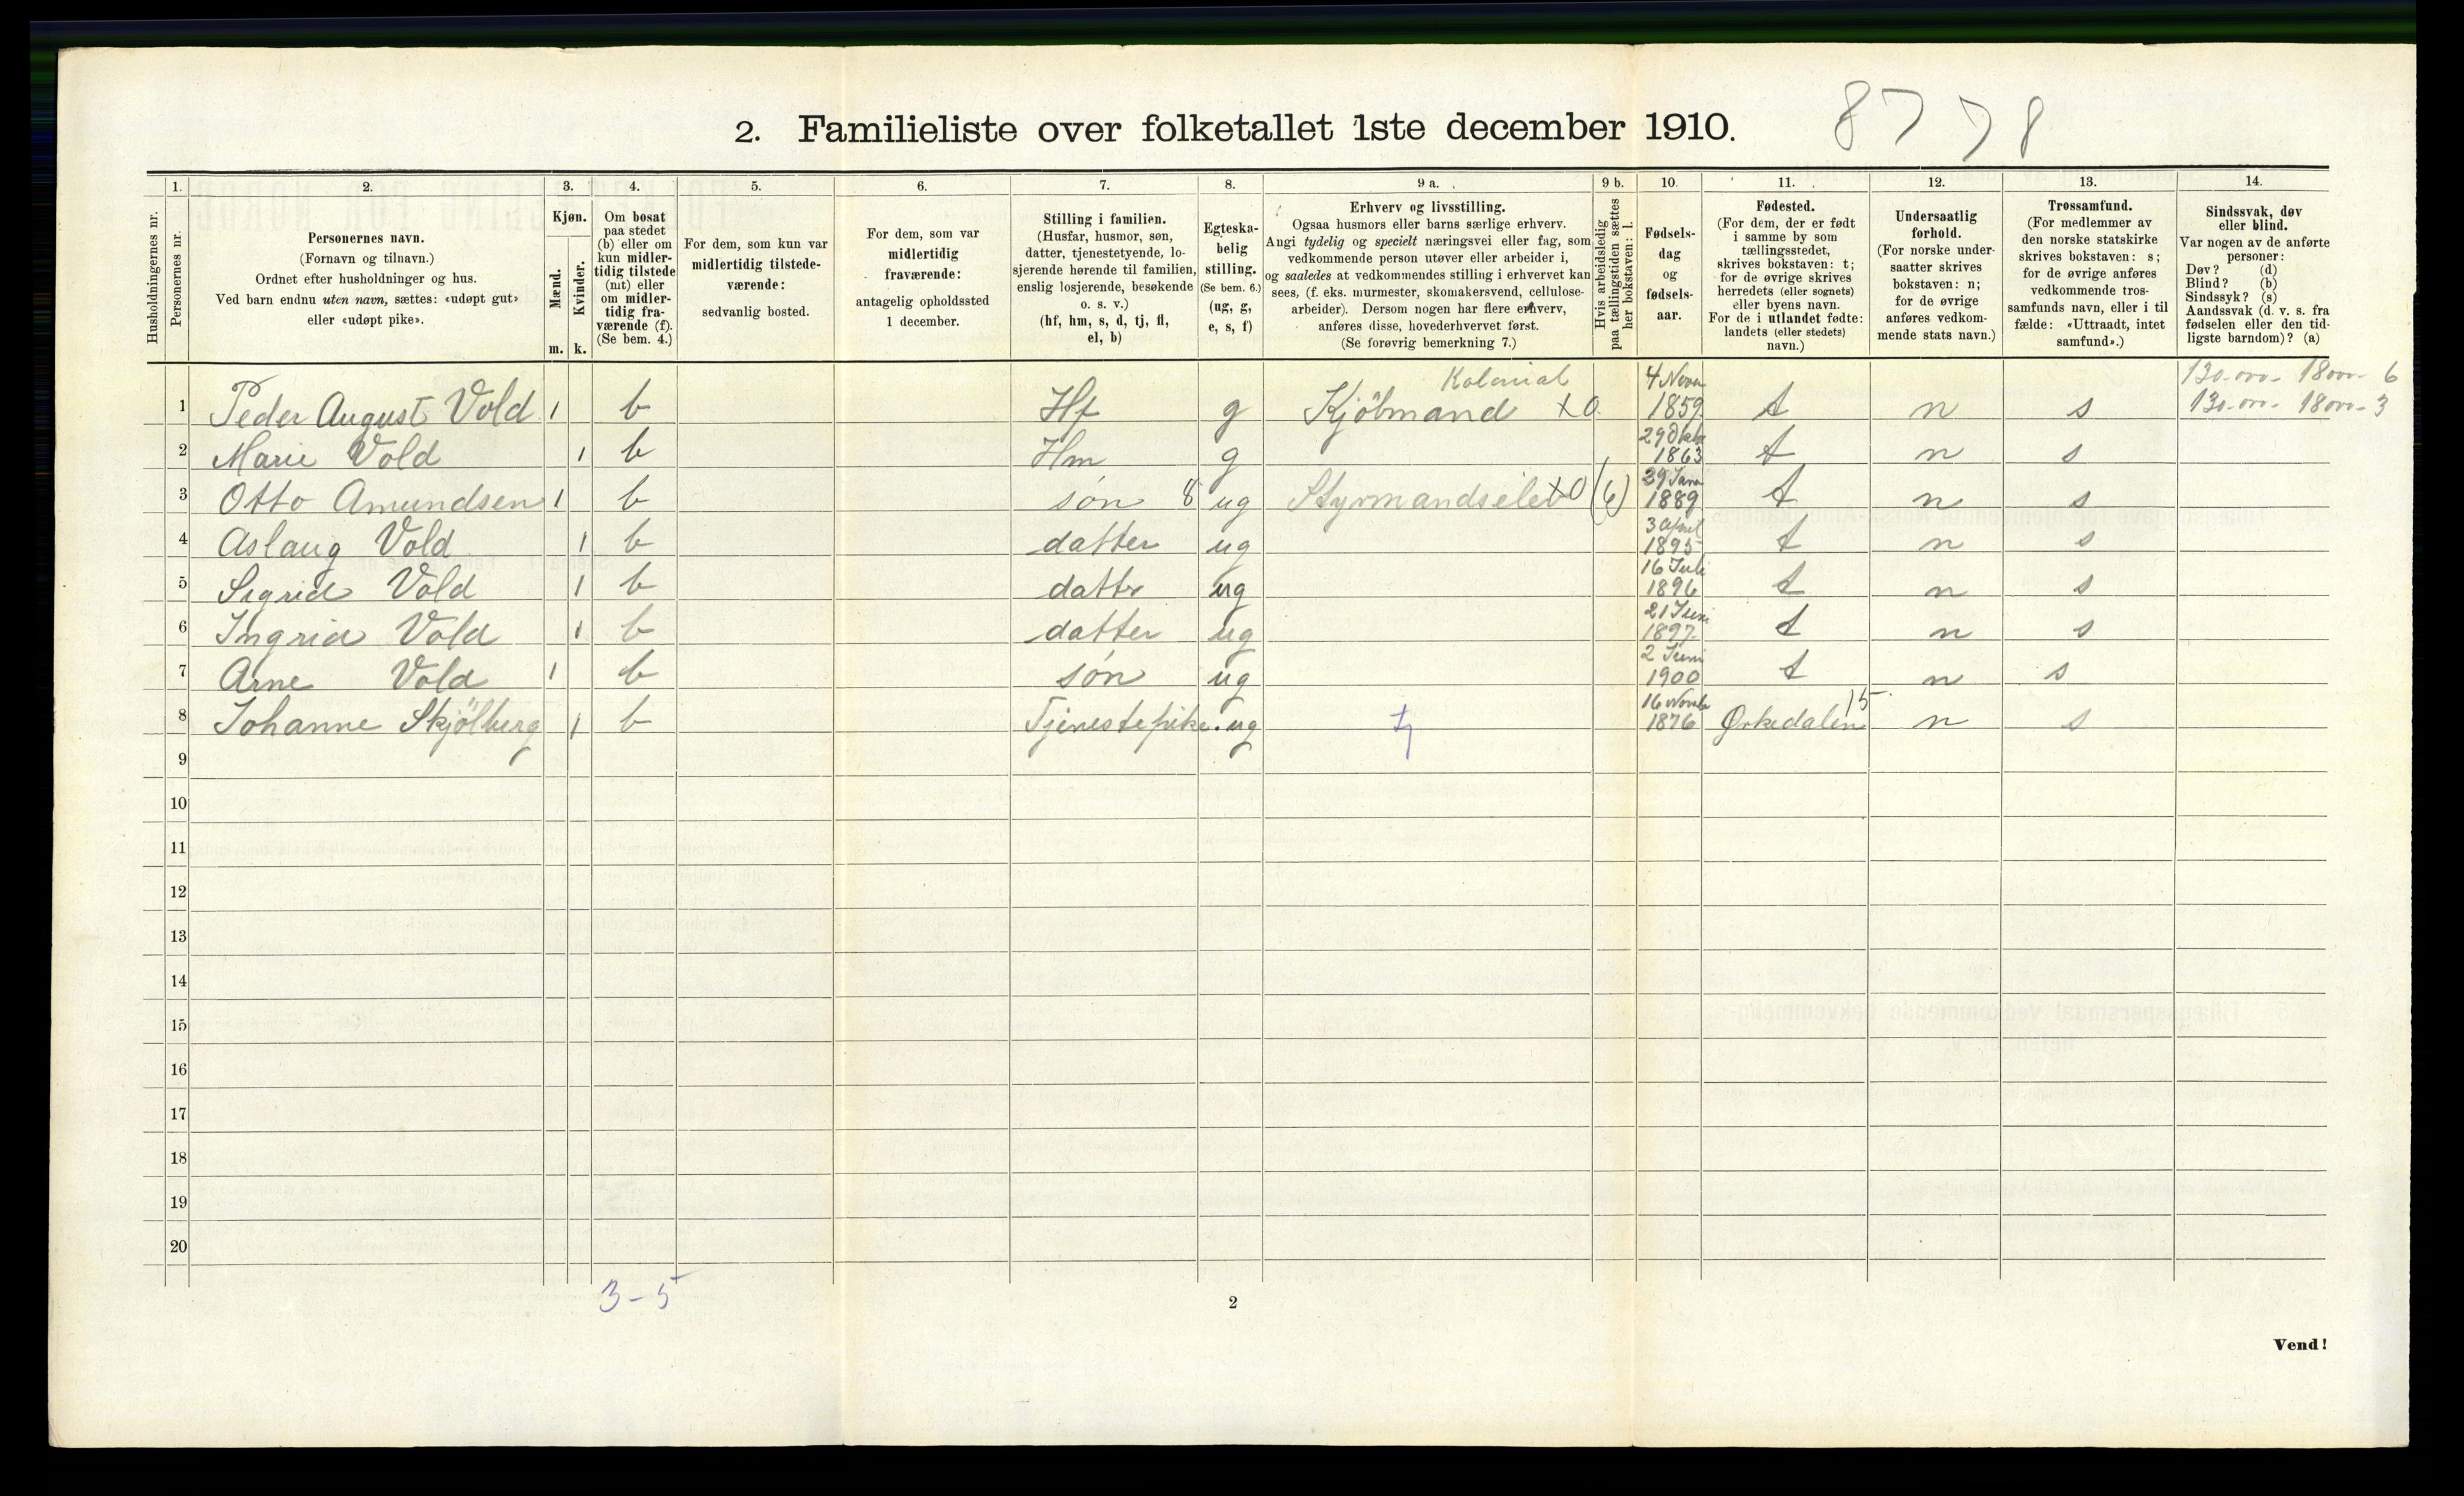 8778
2. Familieliste over folketallet 1ste december 1910.
1. 2. 3. 4. 5. 6. 7. 8. 9 a. 9 b. 10. 11. 12. 13. 14.
Husholdningernes nr.
Personernes nr.
Personernes navn.
(Fornavn og tilnavn.)
Ordnet efter husholdninger og hus.
Ved barn endnu uten navn, sættes: «udøpt gut»
eller «udøpt pike».
Kjøn.
Mænd.
Kvinder.
m. k.
Om bosat
paa stedet
(b) eller om
kun midler-
tidig tilstede
(mt) eller
om midler-
tidig fra-
værende (f).
(Se bem. 4.)
For dem, som kun var
midlertidig tilstede-
værende:
sedvanlig bosted.
For dem, som var
midlertidig
fraværende:
antagelig opholdssted
1 december.
Stilling i familien.
(Husfar, husmor, søn,
datter, tjenestetyende, lo-
sjerende hørende til familien,
enslig losjerende, besøkende
o. s. v.)
(hf, hm, s, d, tj, fl,
el, b)
Egteska-
belig
stilling.
(Se bem. 6.)
(ug, g,
e, s, f)
Erhverv og livsstilling.
Ogsaa husmors eller barns særlige erhverv.
Angi tydelig og specielt næringsvei eller fag, som
vedkommende person utøver eller arbeider i,
og saaledes at vedkommendes stilling i erhvervet kan
sees, (f. eks. murmester, skomakersvend, cellulose-
arbeider). Dersom nogen har flere erhverv,
anføres disse, hovederhvervet først.
(Se forøvrig bemerkning 7.)
Hvis arbeidsledig
paa tællingstiden sættes
her bokstaven: l.
Fødsels-
dag
og
fødsels-
aar.
Fødested.
(For dem, der er født
i samme by som
tællingsstedet,
skrives bokstaven: t;
for de øvrige skrives
herredets (eller sognets)
eller byens navn.
For de i utlandet fødte:
landets (eller stedets)
navn.)
Undersaatlig
forhold.
(For norske under-
saatter skrives
bokstaven: n;
for de øvrige
anføres vedkom-
mende stats navn.)
Trossamfund.
(For medlemmer av
den norske statskirke
skrives bokstaven: s;
for de øvrige anføres
vedkommende tros-
samfunds navn, eller i til
fælde: «Uttraadt, intet
samfund».)
Sindssvak, døv
eller blind.
Var nogen av de anførte
personer:
Døv? (d)
Blind? (b)
Sindssyk? (s)
Aandssvak (d. v. s. fra
fødselen eller den tid-
ligste barndom)? (a)
Kolonial 4 Novm
1 Peder August Vold 1 b Hf g Kjöbmand x0 1859 t n s
2 Marie Vold 1 b Hm g 29 Oktb 1863 t n s
3 Otto Amundsen 1 b són 8 ug Styrmandselev x0 (6) 29 Janu 1889 t n s
4 Aslaug Vold 1 b datter ug 3 April 1895 t n s
5 Sigrid Vold 1 b datter ug 16 Juli 1896 t n s
6 Ingrid Vold 1 b datter ug 21 Juni 1897 t n s
7 Arne Vold 1 b són ug 2 Juni 1900 t n s
8 Johanne Skjölberg 1 b Tjenestepike. ug tj 16 Novbr 1876 Ørkedalen 15 n s
9
10
11
12
13
14
15
16
17
18
19
20
3-5
2
Vend!